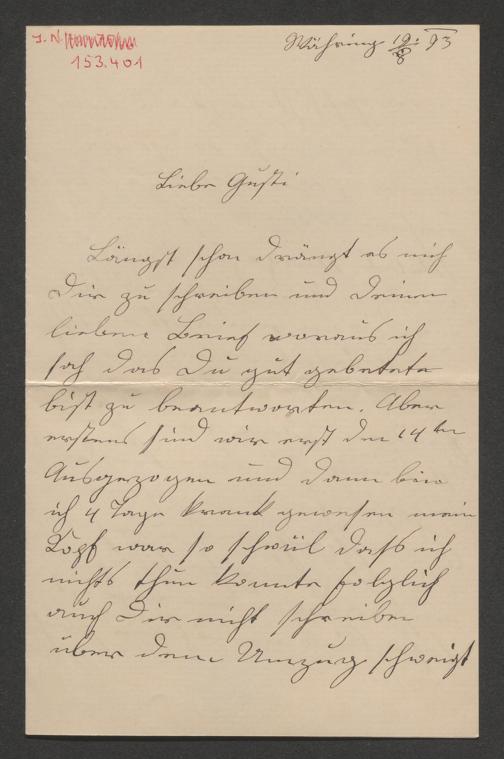 J. N.
153.401
Währing 19./8 93
Liebe Gusti
Längst schon drängt es mich
Dir zu schreiben und Deinen
lieben Brief woraus ich
sah das Du gut gebettet
bist zu beantworten. Aber
erstens sind wir erst den 14ten
Ausgezogen und dann bin
ich 4 Tage krank gewesen mein
Kopf war so schwül dass ich
nichts thun konnte folglich
auch Dir nicht schreiben
über den Umzug schweigt